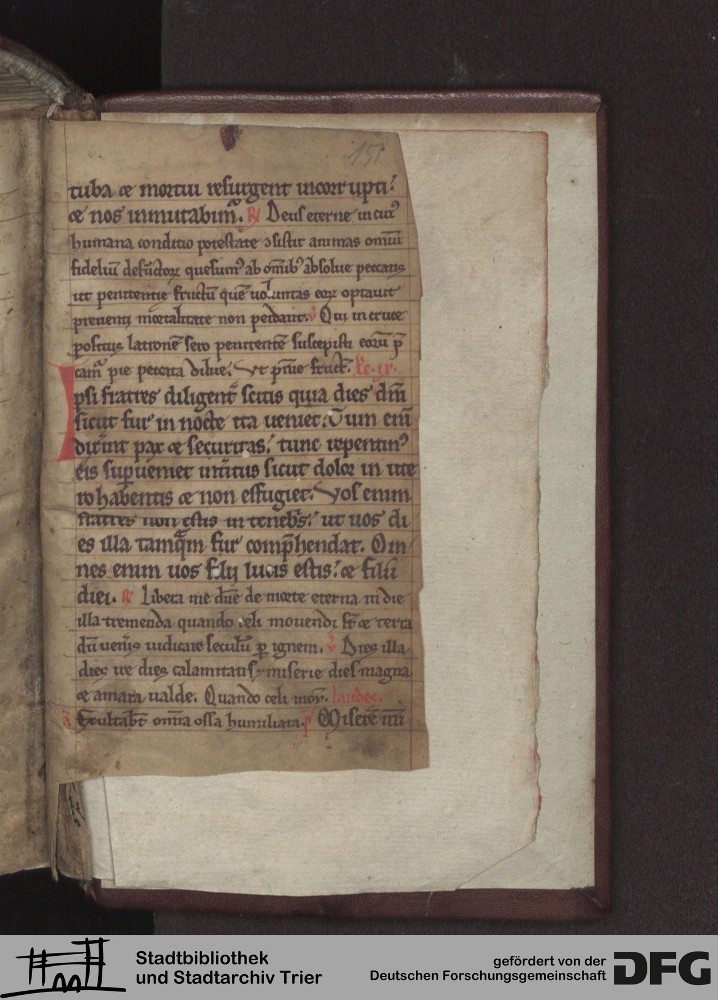 151
tuba et mortui resurgent incorrupti.
et nos inmutabim̃. R̃ Deus eterne in cui᷒
humana conditio potestate ɔsistit animas omniũ
fideliũ defũctoꝝ quesum᷒ ab om̃ib᷒ absolue peccatis
ut penitentie fructũ quẽ uoluntas eoꝝ optauit
preuenti mortalitate non perdant. V̇ Qui in cruce
positus latronẽ sero penitentẽ suscepisti eorũ p̃
cam̃ pie peccata dilue. Vt p̃nie fruct̃. Lc. ix.
Ipsi fratres diligent̃ scitis quia dies dñi
sicut fur in nocte ita ueniet. Cum eni̅
dix̃int pax et securitas. tunc repentin᷒
eis sup̃ueniet int̃itus sicut dolor in ute
ro habentis et non effugiet. Vos enim
fratres non estis in tenebr̃s. ut uos di
es illa tamq̃m fur comp̃hendat. Om
nes enim uos filij lucis estis. et filii
diei. R̃ Libera me dñe de morte eterna in die
illa tremenda quando celi mouendi st̃ et terra
dũ ueneris iudicare seculũ p̱ ignem. V̇ Dies illa
dies ire dies calamitatis ⁊ miserie dies magna
et amara ualde. Quando celi mov̇. laudes.
a᷑ Exultabt̃ om̃ia ossa humiliata. p̃ Miserẽ mi̅
Stadtbibliothek
und Stadtarchiv Trier
gefördert von der
Deutschen Forschungsgemeinschaft
DFG